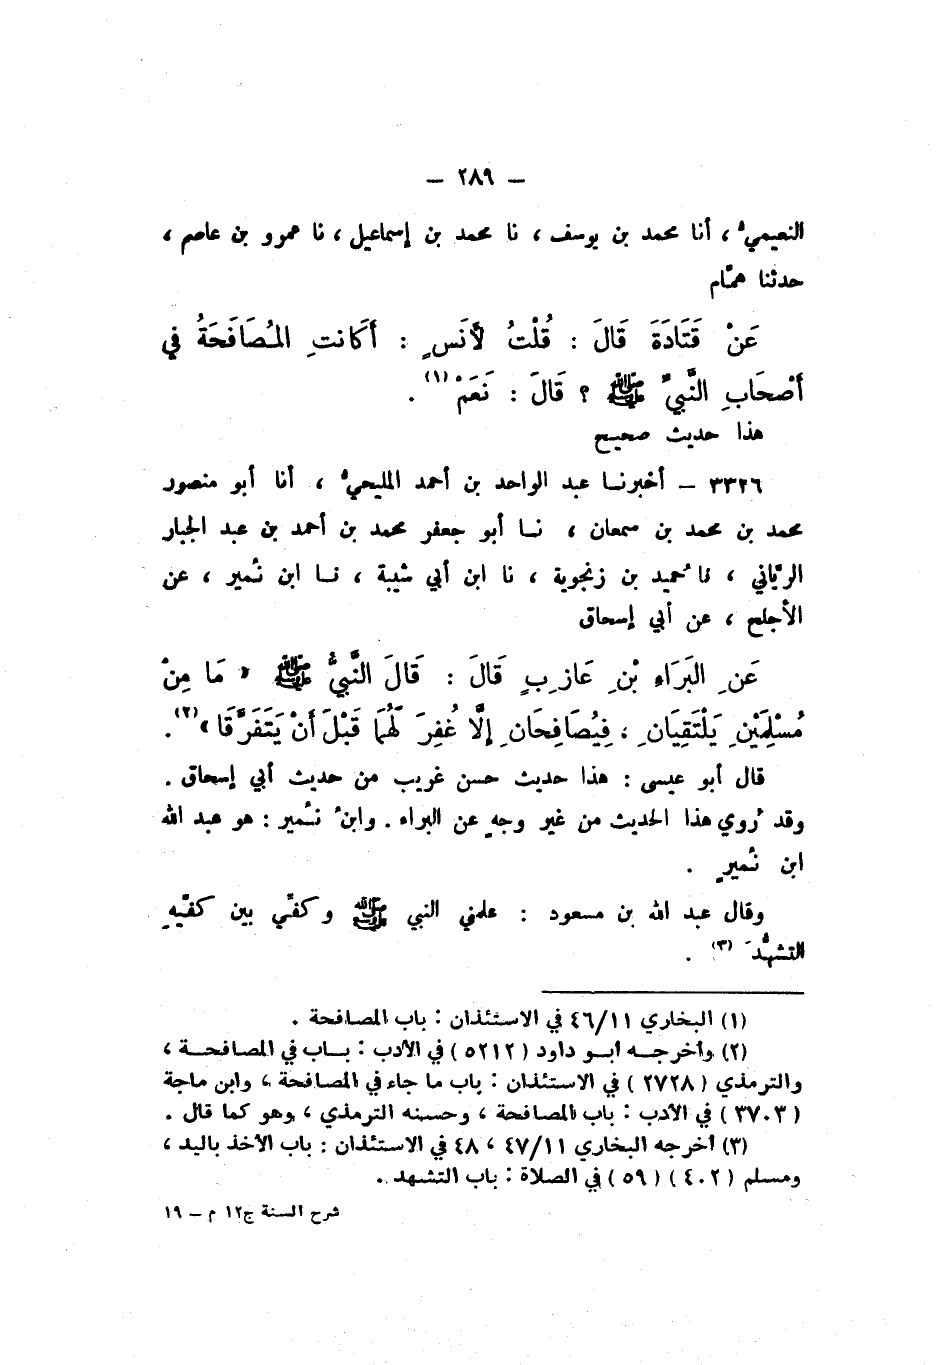 – ٢٨٩ –
النعيميُّ ، أنا محمد بن يوسف ، نا محمد بن إسماعيل ، نا عمرو بن عاصم ،
حدثنا همّام
عَنْ قَتَادَةَ قَالَ : قُلْتُ لأَنَسٍ : أَكَانتِ المُصَافَحَةُ في
أَصْحَابِ النَّبيِّ ﷺ ؟ قَالَ : نَعَمْ (١) .
هذا حديث صحيح
٣٣٢٦ – أخبرنـا عبد الواحد بن أحمد المليحيُّ ، أنا أبو منصور
محمد بن محمد بن سمعان ، نـا أبو جعفر محمد بن أحمد بن عبد الجبار
الريّاني ، نا حُميد بن زنجوية ، نا ابن أبي شيبة ، نـا ابن نُمير ، عن
الأجلح ، عن أبي إسحاق
عَنِ البَرَاءِ بْنِ عَازِبٍ قَالَ : قَالَ النَّبيُّ ﷺ « مَا مِنْ
مُسْلِمَيْنِ يَلْتَقِيَانِ ، فَيُصَافِحَانِ إلَّا غُفِرَ لَهُمَا قَبْلَ أَنْ يَتَفَرَّقَا » (٢) .
قال أبو عيسى : هذا حديث حسن غريب من حديث أبي إسحاق .
وقد رُوي هذا الحديث من غير وجهٍ عن البراء . وابنُ نُمير : هو عبد الله
ابن نُميرٍ .
وقال عبد الله بن مسعود : علمني النبي ﷺ وكفّي بين كفّيهِ
التشهُّدَ (٣) .
(١) البخاري ٤٦/١١ في الاستئذان : باب المصافحة .
(٢) وأخرجـه أبـو داود ( ٥٢١٢ ) في الأدب : بـاب في المصافحـة ،
والترمذي ( ٢٧٢٨ ) في الاستئذان : باب ما جاء في المصافحة ، وابن ماجة
( ٣٧٠٣ ) في الأدب : باب المصافحة ، وحسنه الترمذي ، وهو كما قال .
(٣) أخرجه البخاري ٤٧/١١ ، ٤٨ في الاستئذان : باب الأخذ باليد ،
ومسلم ( ٤٠٢ ) ( ٥٩ ) في الصلاة : باب التشهد .
شرح السنة ج١٢ م – ١٩